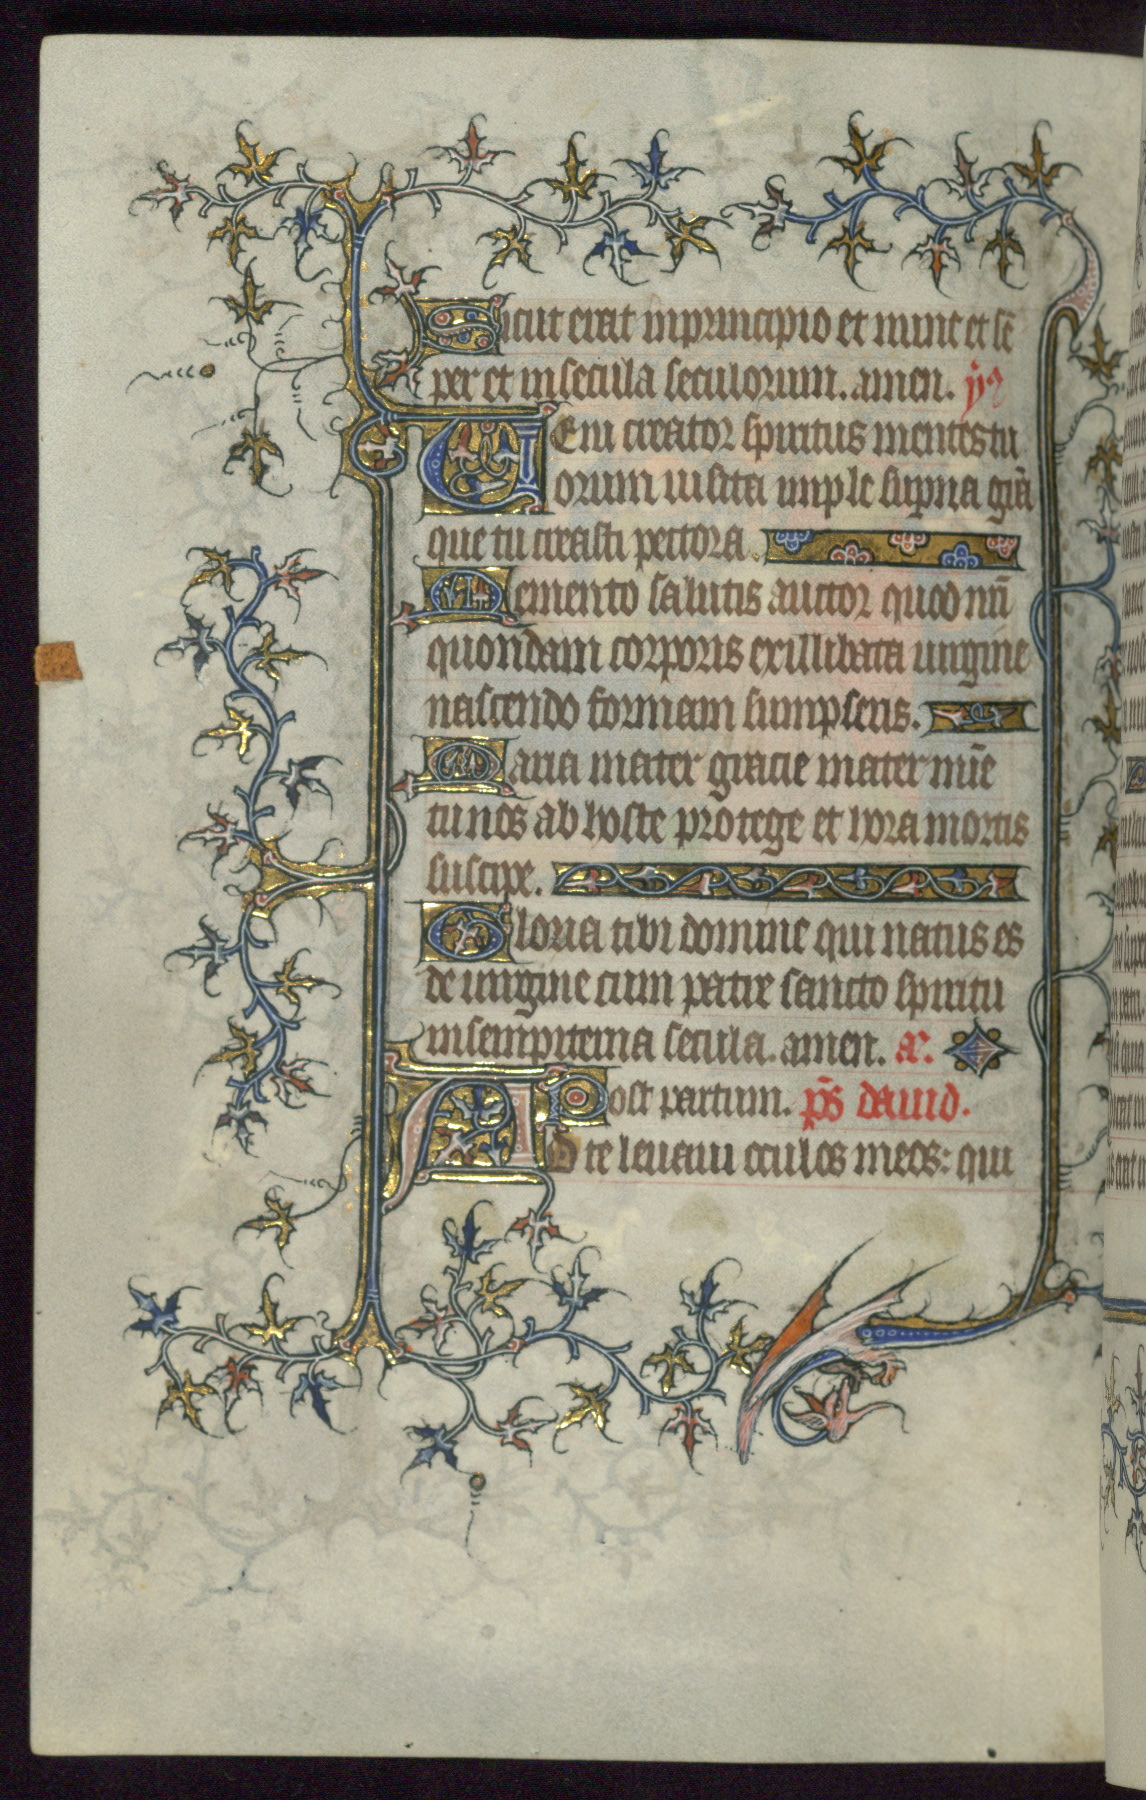 Sicut erat in principio et nunc et sē
per et in secula seculorum. amen. ẏ9
Veni creator spiritus mentes tu
orum uisita imple supna grā
que tu creasti pectora.
Memento salutis auctor quod nr̄i
quondam corporis exillibata uirgine
nascendo formam sumpseris.
Maria mater gracie mater mīe
tu nos ab hoste protege et hora mortis
suscipe.
Gloria tibi domine qui natus es
de uirgine cum patre sancto spiritu
in sempiterna secula. amen. añ.
Post partum. p̄s dauid.
AD te leuaui oculos meos: qui